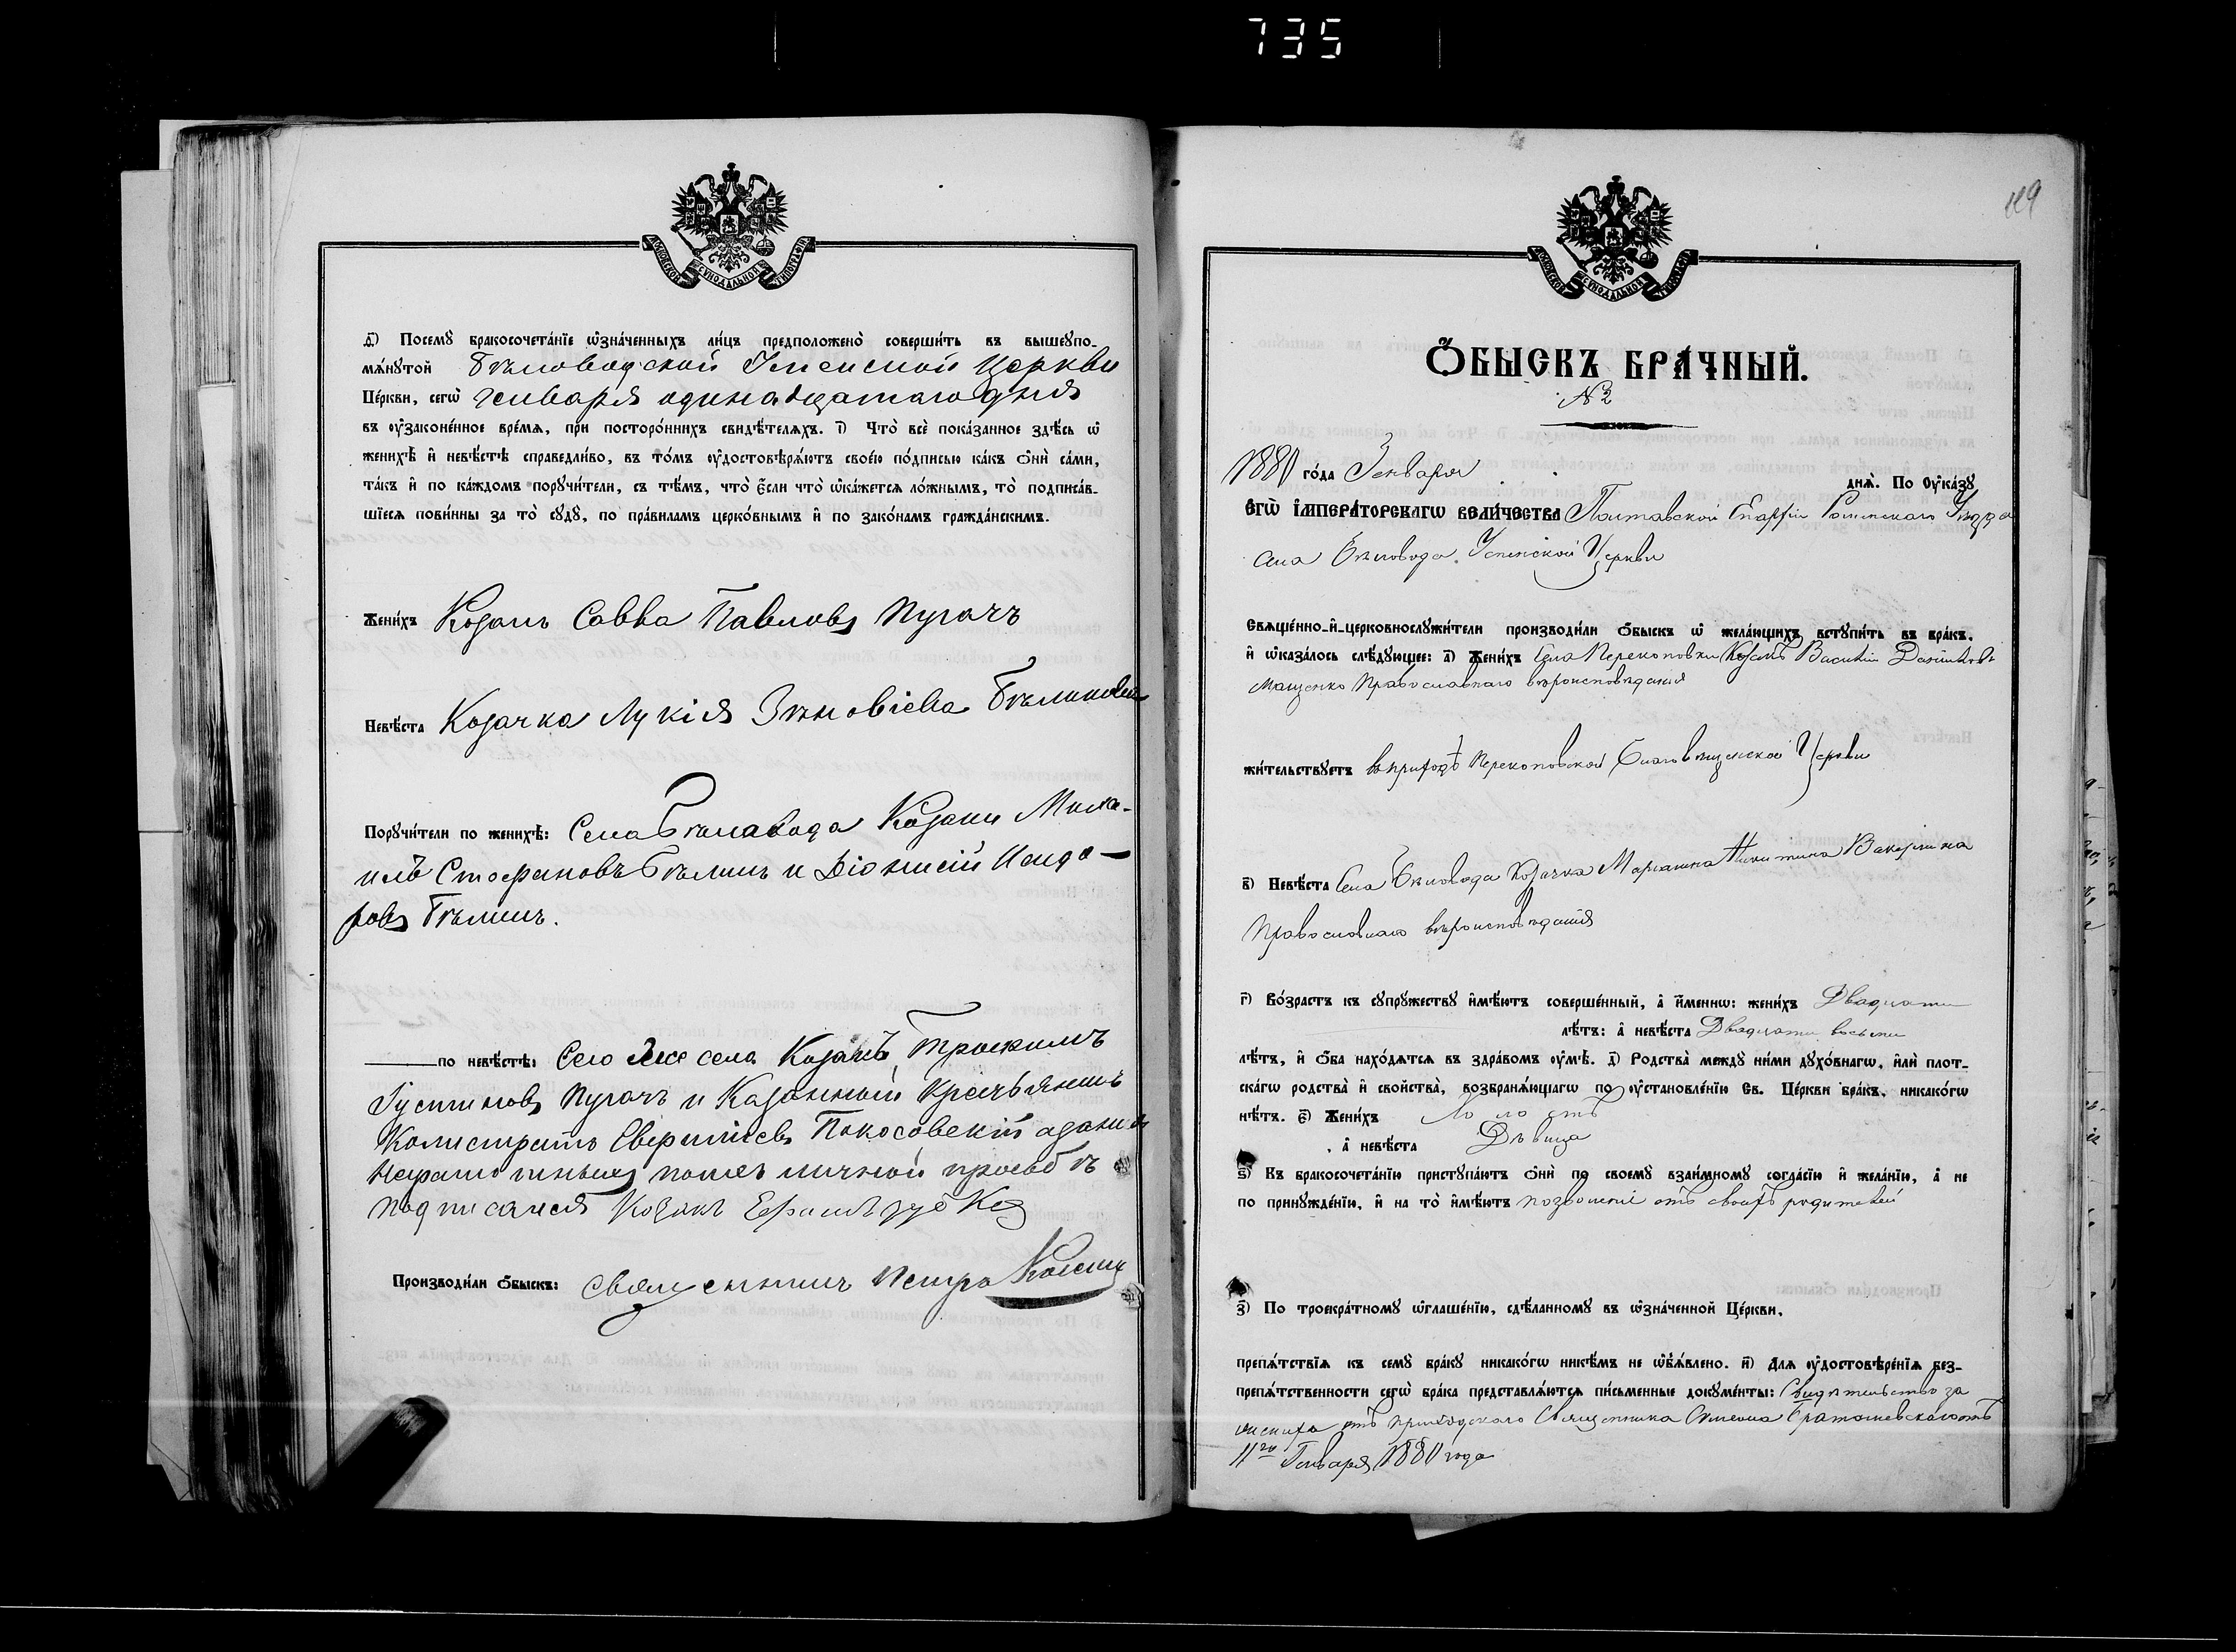 735
МОСКОВСКОЙ СѴНОДАЛЬНОЙ ТИПОГРАФІИ
д҃) Посемꙋ бракосочета́нїе ѡ҆зна́ченныхъ ли́цъ предположено̀ соверши́ть въ вышеꙋпо-
мѧ́нꙋтой Бѣловодской Успенской Церкви
Це́ркви, сегѡ̀ Генваря одинадцатаго дня
въ ᲂу҆зако́ненное вре́мѧ, при посторо́ннихъ свидѣ́телѧхъ. і҃) Что̀ всѐ пока́занное здѣ́сь ѡ҆
женихѣ̀ и҆ невѣ́стѣ справедли́во, въ то́мъ ᲂу҆достовѣрѧ́ютъ свое́ю по́дписью ка́къ ѻ҆нѝ са́ми,
та́къ и҆ по ка́ждомъ порꙋчи́тели, съ тѣ́мъ, что̀ є҆́сли что̀ ѡ҆ка́жетсѧ ло́жнымъ, то̀ подписа́в-
шїесѧ пови́нны за то̀ сꙋдꙋ̀, по пра́виламъ церко́внымъ и҆ по зако́намъ гражда́нскимъ.
Жени́хъ Козакъ Савва Павловъ Пугачъ
Невѣ́ста Козачка Лукія Зѣновіева Бѣликова
Порꙋчи́тели по женихѣ̀: Села Бѣловода Козаки Миха-
илъ Стефановъ Бѣликъ и Діонисій Исидо-
ровъ Бѣликъ.
по невѣ́стѣ: Сего же села Козакъ Трофимъ
Іустиновъ Пугачъ и Казенный Крестьянинъ
Калистратъ Покосовскій а за них
Неграмотныхъ по ихъ личной прозьбѣ
подписался Козакъ
Производи́ли ѻ҆́быскъ: Священникъ Петръ
119
МОСКОВСКОЙ СѴНОДАЛЬНОЙ ТИПОГРАФІИ
Ѻ҆́БЫСКЪ БРА́ЧНЫЙ.
№ 2
1881 го́да Генваря днѧ̀. По Оу҆ка́зꙋ
ЄГѠ̀ І҆МПЕРА́ТОРСКАГѠ ВЕЛИ́ЧЕСТВА Полтавской Епархіи Роменскаго Уѣзда
села Бѣловода Успенской Церкви
Свѧще́нно-и҆-церковнослꙋжи́тели производи́ли ѻ҆́быскъ ѡ҆ жела́ющихъ встꙋпи́ть въ бра́къ,
и҆ ѡ҆каза́лось слѣ́дꙋющее: а҃) Жени́хъ Села Перекоповки Козакъ Василій Даниловъ
Мащенко Православнаго вѣроисповѣданія
жи́тельствꙋетъ въ приходѣ Перекоповской Благовѣщенской Церкви
в҃) Невѣ́ста Села Бѣловода Козачка Маріанна Никитина
Православнаго вѣроисповѣданія
г҃) Во́зрастъ къ сꙋпрꙋ́жествꙋ и҆мѣ́ютъ соверше́нный, а҆ и҆́меннѡ: жени́хъ Двадцати
лѣ́тъ: а҆ невѣ́ста Двадцати восьми
лѣ́тъ, и҆ ѻ҆́ба нахо́дѧтсѧ въ здра́вомъ ᲂу҆мѣ̀. д҃) Родства̀ междꙋ̀ ни́ми дꙋхо́внагѡ, и҆лѝ плот-
ска́гѡ родства̀ и҆ сво́йства, возбранѧ́ющагѡ по ᲂу҆становле́нїю Св. Це́ркви бра́къ, никако́гѡ
нѣ́тъ. є҃) Жени́хъ Холостъ
а҆ невѣ́ста Дѣвица
ѕ҃) Къ бракосочета́нїю пристꙋпа́ютъ ѻ҆нѝ по своемꙋ̀ взаи́мномꙋ согла́сїю и҆ жела́нїю, а҆ не
по принꙋжде́нїю, и҆ на то̀ и҆мѣ́ютъ позволеніе отъ своихъ родителей
з҃) По троекра́тномꙋ ѡ҆глаше́нїю, сдѣ́ланномꙋ въ ѡ҆зна́ченной Це́ркви,
препѧ́тствїѧ къ семꙋ̀ бра́кꙋ никако́гѡ никѣ́мъ не ѡ҆б̾ѧ́влено. и҃) Длѧ ᲂу҆достовѣре́нїѧ без-
препѧ́тственности сегѡ̀ бра́ка представлѧ́ютсѧ пи́сьменные докꙋме́нты: Свидѣтельство за
жениха отъ приходскаго Священника Симеона отъ
11го Генваря 1881 года